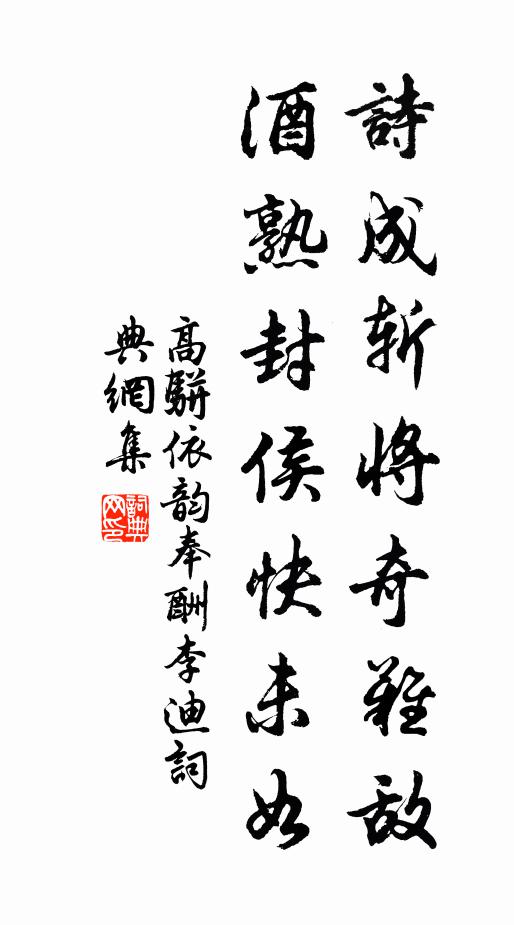 詩成斬將奇難敵
酒熟封侯快未如
高駢依韵奉酬李迪詞
典網集
詞典
网印